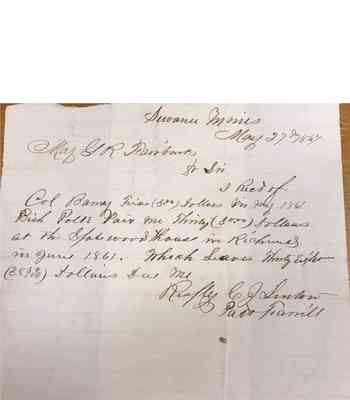 Sewanee Mines
May 27th 1867
Maj G R Fairbanks
Dr Sir
I Recd of
Col Barney Five (5 00) Dollars in July 1861
Bish Polk Paid me Thirty (30 00) Dollars
at the Spotswood House in Richmond
in June 1861. Which Leaves Thirty Eight
Dollars Due Me
Respfly C J